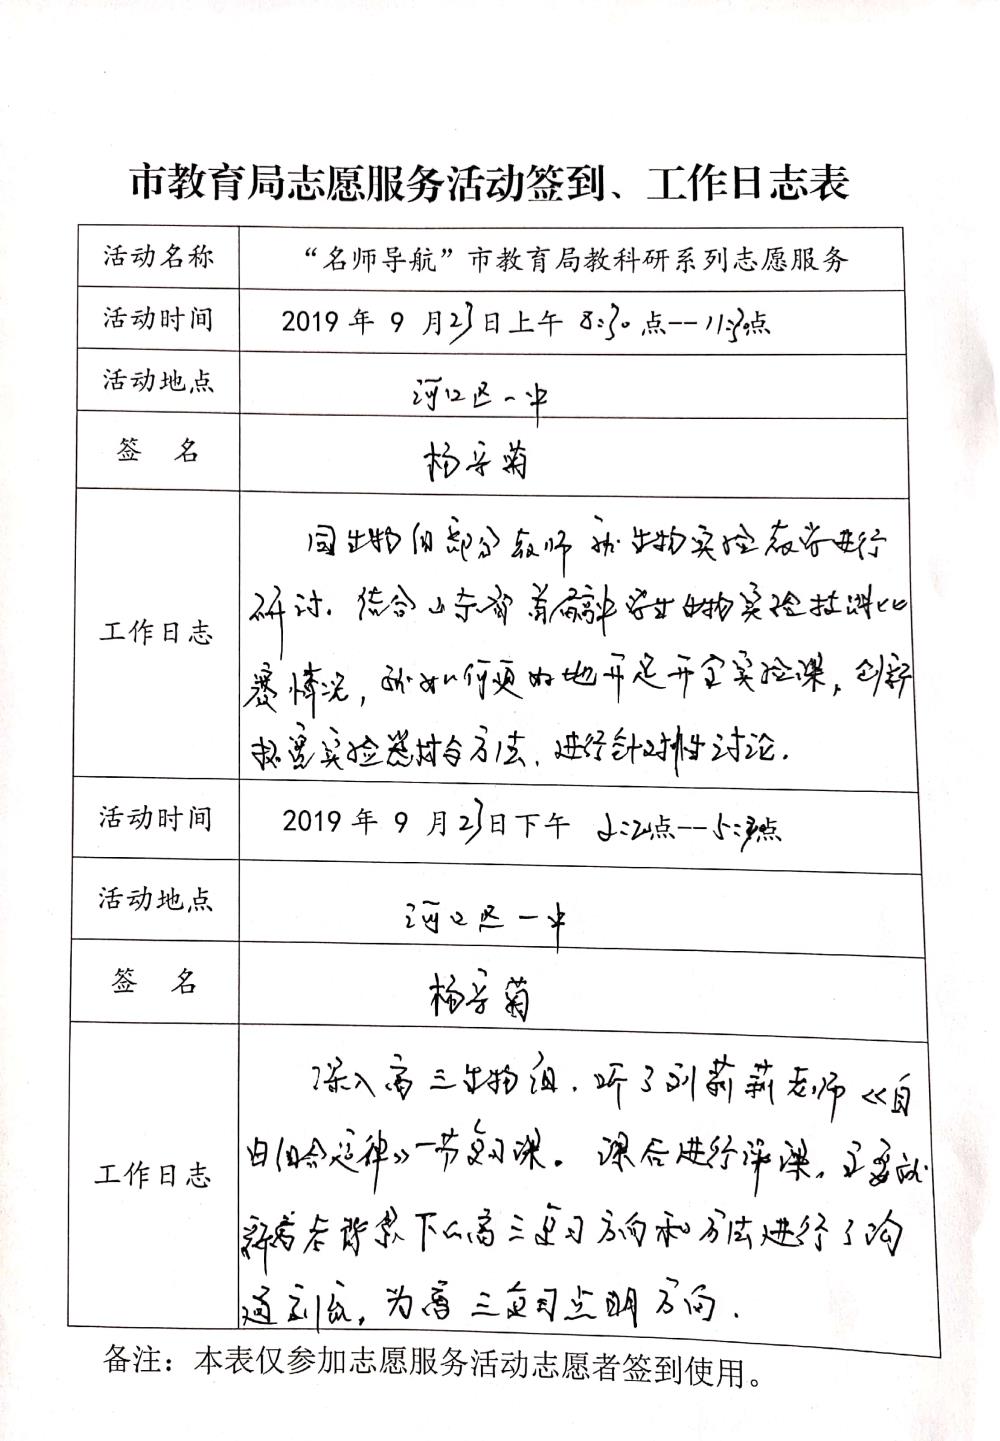 市教育局志愿服务活动签到、工作日志表
活动名称 “名师导航”市教育局教科研系列志愿服务
活动时间 2019 年 9 月23日上午 8:30 点--11:30点
活动地点 河口区一中
签 名 杨守菊
工作日志
同生物组部分教师就生物实验教学进行
研讨.结合山东省首届高中学生生物实验技能比
赛情况,就如何更好地开足开全实验课,创新
拓宽实验器材与方法,进行针对性讨论.
活动时间 2019 年 9 月23日下午 2:20点--5:30点
活动地点 河口区一中
签 名 杨守菊
工作日志
深入高三生物组.听了刘莉莉老师《自
由组合定律》一节复习课。课后进行评课,主要就
新高考背景下的高三复习方向和方法进行了沟
通,为高三复习点明方向.
备注:本表仅参加志愿服务活动志愿者签到使用。